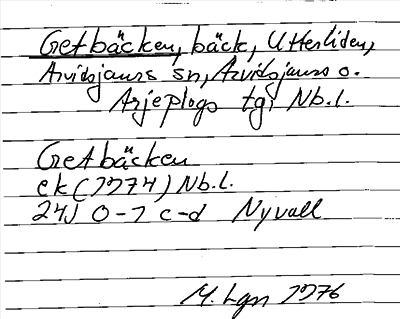 Getbäcken, bäck, Utterliden,
Arvidsjaurs sn, Arvidsjaurs o.
Arjeplogs tgi Nb.l.
Getbäcken
ek (1974) Nb.l.
24J 0-1 c-d Nyvall
M. Lgn 1976